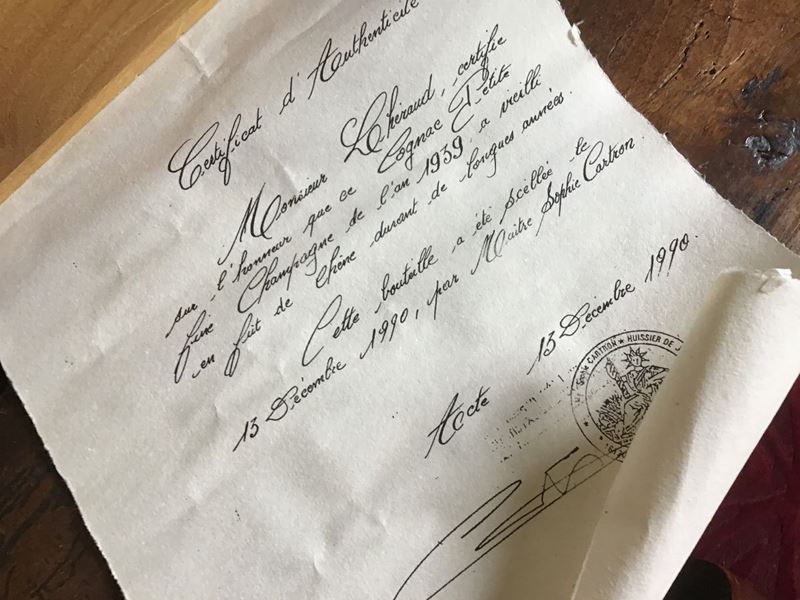 Certificat d'Authenticité
Monsieur Lhéraud, certifie
sur l'honneur que ce Cognac Petite
fine Champagne de l'an 1939, a vieilli
en fût de chêne durant de longues années.
Cette bouteille a été scellée le
13 Décembre 1990, par Maître Sophie Cartron.
Acte 13 Décembre 1990.
Sophie CARTRON ★ HUISSIER DE